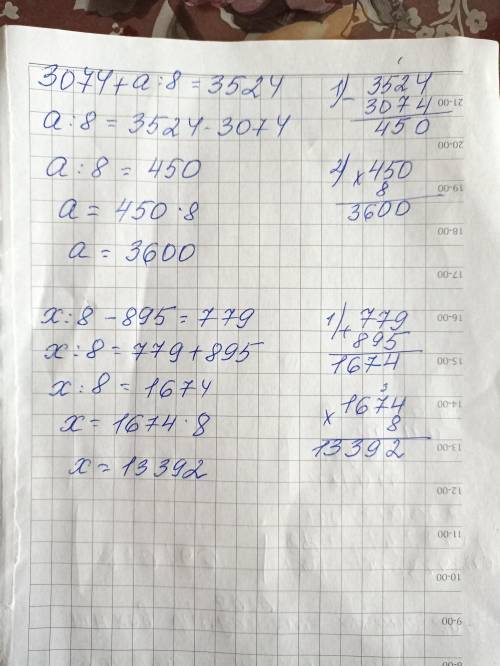 3074 + a : 8 = 3524
a : 8 = 3524 - 3074
a : 8 = 450
a = 450 · 8
a = 3600
1) 3524
- 3074
450
2) 450
× 8
3600
x : 8 - 895 = 779
x : 8 = 779 + 895
x : 8 = 1674
x = 1674 · 8
x = 13392
1) 779
+ 895
1674
3
1674
× 8
13392
21-00
20-00
19-00
18-00
17-00
16-00
15-00
14-00
13-00
12-00
11-00
10-00
9-00